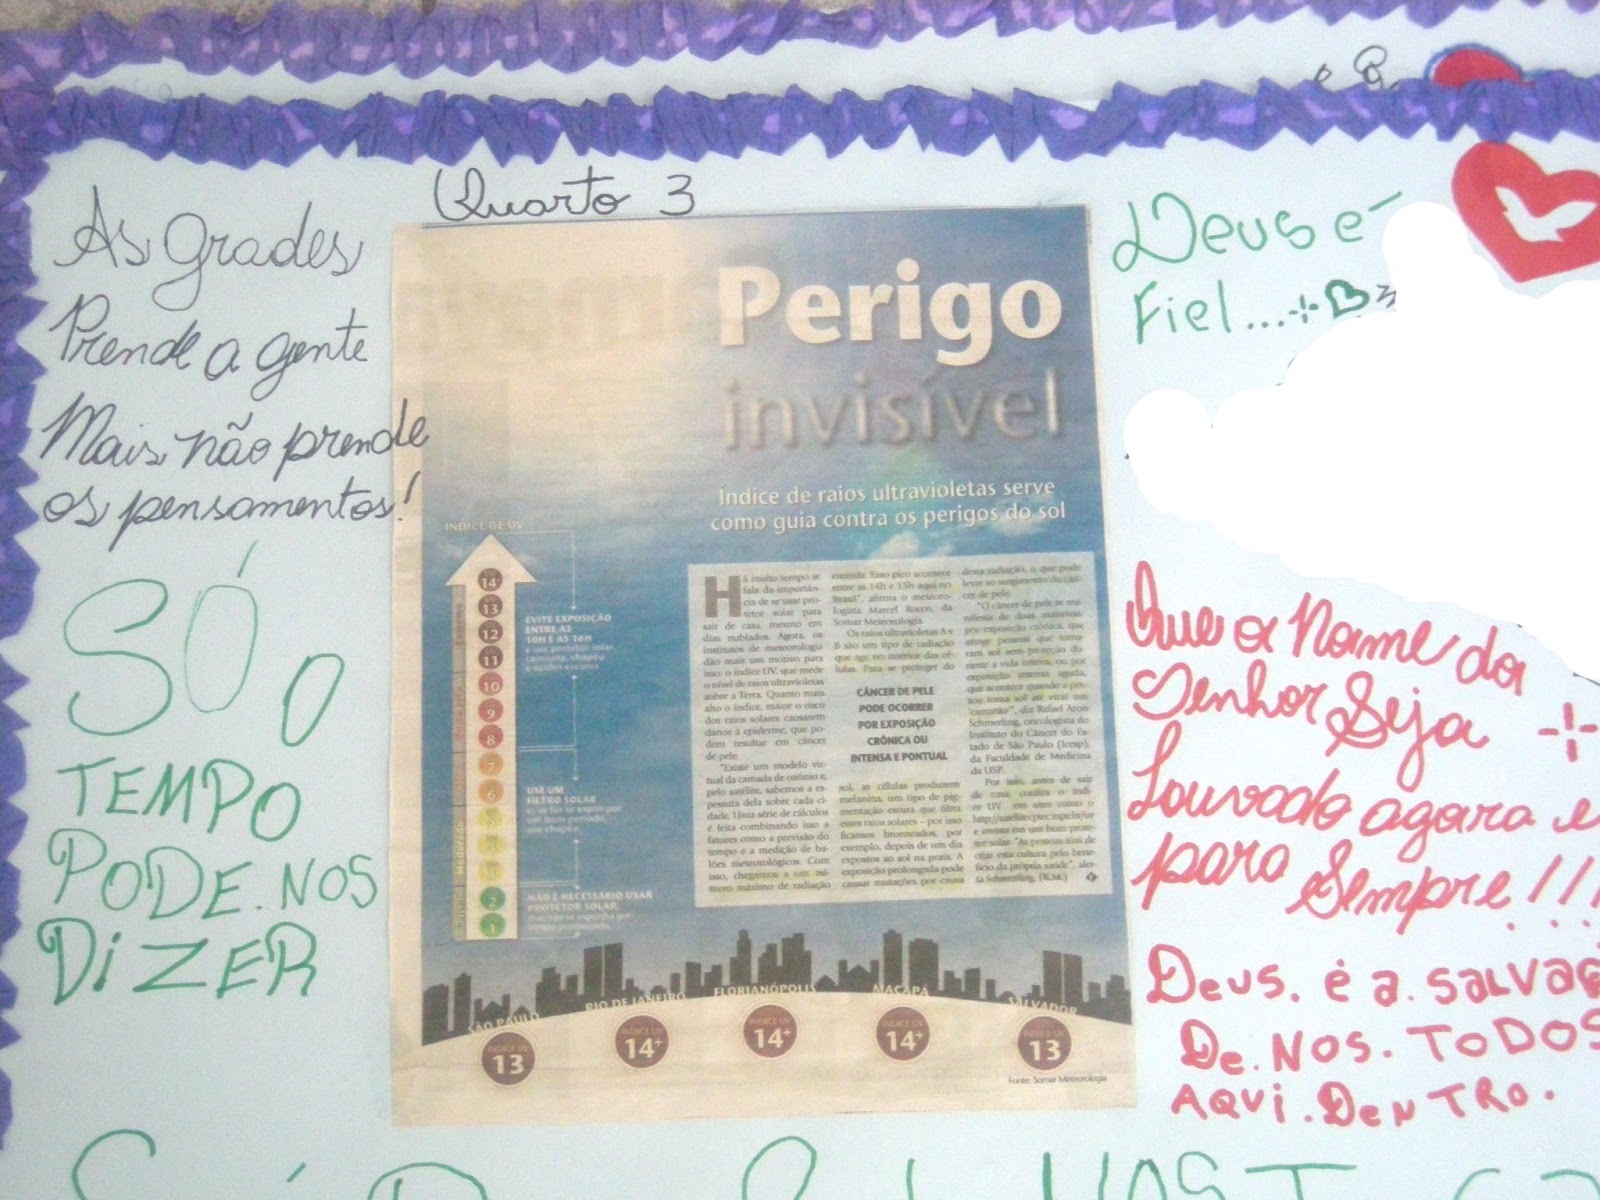 Quarto 3
As grades
Prende a gente
Mais não prende
os pensamentos!
SÓ O
TEMPO
PODE.NOS
DiZER
Perigo
invisível
Índice de raios ultravioletas serve
como guia contra os perigos do sol
ÍNDICE DE UV
14+
13
12
11
10
9
8
7
6
5
4
3
2
1
Moderado
EVITE EXPOSIÇÃO
ENTRE AS
10H E AS 16H
e use protetor solar,
camiseta, chapéu
e óculos escuros
USE UM
FILTRO SOLAR
e, se for se expor por
um bom período,
use chapéu.
NÃO É NECESSÁRIO USAR
PROTETOR SOLAR,
mas não se exponha por
tempo prolongado.
Há muito tempo se
fala da importân-
cia de se usar pro-
tetor solar para
sair de casa, mesmo em
dias nublados. Agora, os
institutos de meteorologia
dão mais um motivo para
isso: o índice UV, que mede
o nível de raios ultravioletas
sobre a Terra. Quanto mais
alto o índice, maior o risco
dos raios solares causarem
danos à epiderme, que po-
dem resultar em câncer
de pele.
"Existe um modelo vir-
tual da camada de ozônio e,
pelo satélite, sabemos a es-
pessura dela sobre cada ci-
dade. Uma série de cálculos
é feita combinando isso a
fatores como a previsão do
tempo e a medição de ba-
lões meteorológicos. Com
isso, chegamos a um nú-
mero máximo de radiação
emitida. Esse pico acontece
entre as 14h e 15h aqui no
Brasil", afirma o meteoro-
logista Marcel Rocco, da
Somar Meteorologia.
Os raios ultravioletas A e
B são um tipo de radiação
que age no interior das cé-
lulas. Para se proteger do
CÂNCER DE PELE
PODE OCORRER
POR EXPOSIÇÃO
CRÔNICA OU
INTENSA E PONTUAL
sol, as células produzem
melanina, um tipo de pig-
mentação escura que filtra
esses raios solares – por isso
ficamos bronzeados, por
exemplo, depois de um dia
expostos ao sol na praia. A
exposição prolongada pode
causar mutações por causa
dessa radiação, o que pode
levar ao surgimento do cân-
cer de pele.
"O câncer de pele se ma-
nifesta de duas maneiras:
por exposição crônica, que
atinge pessoas que toma-
ram sol sem proteção du-
rante a vida inteira, ou por
exposição intensa aguda,
que acontece quando a pes-
soa toma sol até virar um
'camarão'", diz Rafael Aron
Schmerling, oncologista do
Instituto do Câncer do Es-
tado de São Paulo (Icesp),
da Faculdade de Medicina
da USP.
Por isso, antes de sair
de casa, confira o índi-
ce UV em sites como o
e invista em um bom prote-
tor solar. "As pessoas têm de
criar esta cultura pelo bene-
fício da própria saúde", aler-
ta Schmerling. (N.M.)
SÃO PAULO
ÍNDICE UV
13
RIO DE JANEIRO
ÍNDICE UV
14+
FLORIANÓPOLIS
ÍNDICE UV
14+
MACAPÁ
ÍNDICE UV
14+
SALVADOR
ÍNDICE UV
13
Fonte: Somar Meteorologia
Deus é
Fiel...
Que o Nome do
Senhor Seja
Louvado agora e
para Sempre!!!
Deus. é a. SALVAÇ
De.NOS.TODOS
AQVi.DeNTRO.